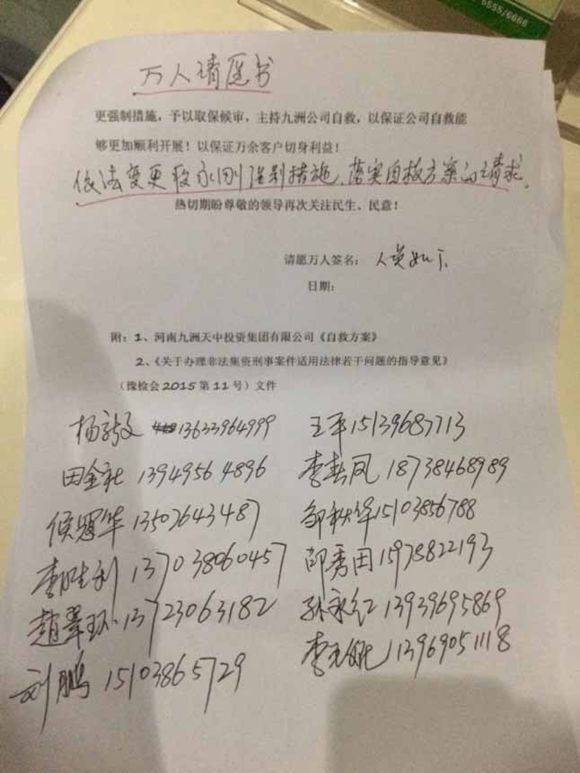 5555/6666
万人请愿书
更强制措施，予以取保候审，主持九洲公司自救，以保证公司自救能
够更加顺利开展！以保证万余客户切身利益！
依法变更 强制措施、落实自救方案的请求。
热切期盼尊敬的领导再次关注民生、民意！
请愿万人签名： 人员如下
日期：
附：1、河南九洲天中投资集团有限公司《自救方案》
2、《关于办理非法集资刑事案件适用法律若干问题的指导意见》
（豫检会 2015 第 11 号）文件
杨 文 13633964999 王平 15139687713
田金 13949564896 李春凤 18738468989
侯冠华 13502643487 邹秋华 15103856788
李胜利 137038060457 邵秀田 15978822193
赵翠环 13723063182 孙永红 13939695869
刘鹏 15103865729 李 13969051118